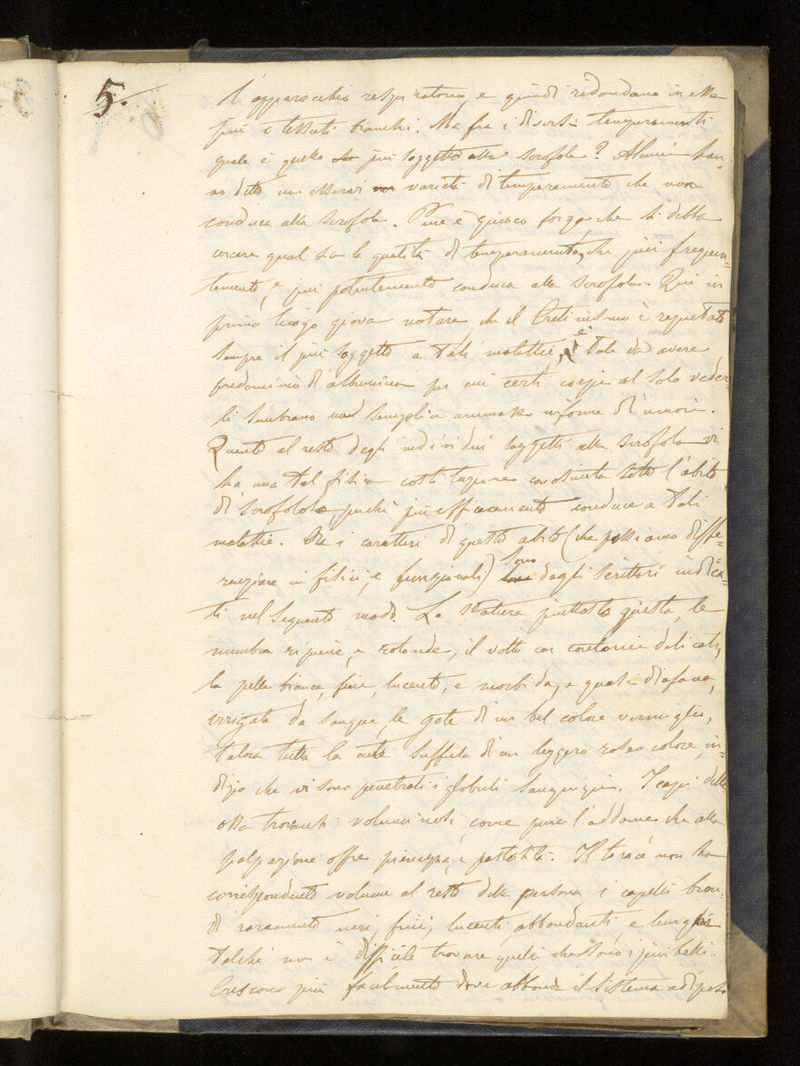 5.
l'apparecchio respiratorio, e quindi ridondano in essa
più i tessuti bianchi. Ma fra i diversi temperamenti
quale è quello più soggetto alla scrofola? Alcuni han-
no detto non esservi varietà di temperamento che non
conduca alla scrofola. Pure è giuoco forza che si debba
cercare qual sia la qualità di temperamento, che più frequen-
temente, e più potentemente conduca alla scrofola. Qui in
primo luogo giova notare che il Cretinismo è reputato
sempre il più soggetto a tali malattie, è tale da avere
predominio d'albumina per cui certi corpi al solo veder-
li sembrano una semplice ammasso informe di umori.
Quanto al resto degli individui soggetti alla scrofola vi
ha una tal fisica costituzione conosciuta sotto l'abito
di scrofoloso perché più efficacemente conduce a tali
malattie. Ora i caratteri di questo abito (che possiamo diffe-
renziare in fisici, e funzionali) sono dagli scrittori indica-
ti nel seguente modo. La statura piuttosto giusta, le
membra ripiene, e rotonde, il volto con contorni delicati,
la pelle bianca, fine, lucente, e morbida, e quasi diafana,
irrigate da sangue, le gote di un bel colore vermiglio,
talora tutta la cute suffusa di un leggero roseo colore, in-
dizio che vi sono penetrati i globuli sanguigni. I capi delle
ossa trovansi voluminosi, come pure l'addome che alla
palpazione offre pienezza, e pastosità. Il torace non ha
corrispondente volume al resto della persona i capelli bion-
di raramente neri, fini, lucenti, abbondanti, e lunghi
talché non è difficile trovare quelli che sono i più belli.
Crescono più facilmente dove abbonda il sistema adiposo